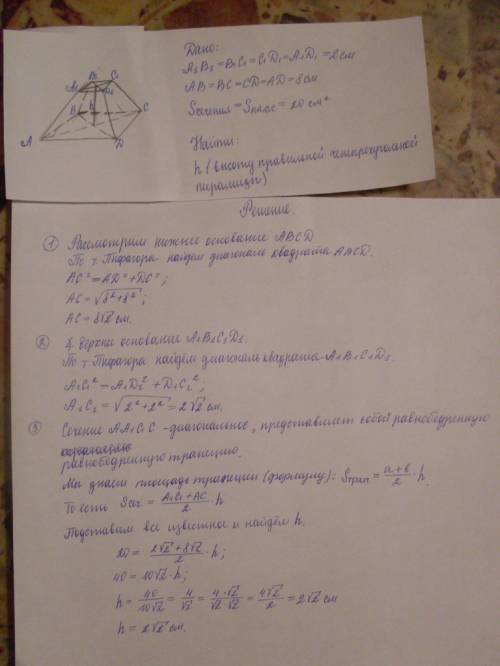 B₁ C₁
A₁ D₁
B h C
A D
Дано:
A₁B₁=B₁C₁=C₁D₁=A₁D₁=2см
AB=BC=CD=AD=8см
Sсечения=Sдиаг=20см²
Найти:
h(высоту правильной четырехугольной
пирамиды)
Решение.
① Рассмотрим нижнее основание ABCD
По т. Пифагора найдем диагональ квадрата ABCD.
AC²=AD²+DC²;
AC=√8²+8²;
AC=8√2 см.
② верхнее основание A₁B₁C₁D₁.
По т. Пифагора найдём диагональ квадрата A₁B₁C₁D₁.
A₁C₁²=A₁D₁²+D₁C₁²;
A₁C₁=√2²+2²=2√2 см.
③ Сечение AA₁C₁C -диагональное, представляет собой равнобедренную
равнобедренную трапецию.
Мы знаем площадь трапеции (формулу): Sтрап=a+b/2·h.
То есть Sсеч.=A₁C₁+AC/2·h
Подставим все известное и найдём h.
20=2√2+8√2/2·h;
40=10√2·h;
h=40/10√2=4/√2=4·√2/√2·√2=4√2/2=2√2 см
h=2√2 см.